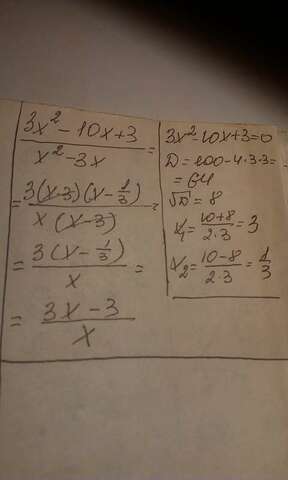 3x² - 10x + 3 / x² - 3x =
= 3(x-3)(x - 1/3) / x(x-3) =
= 3(x - 1/3) / x =
= 3x - 3 / x
3x² - 10x + 3 = 0
D = 100 - 4·3·3 =
= 64
√D = 8
x₁ = 10+8 / 2·3 = 3
x₂ = 10-8 / 2·3 = 1/3